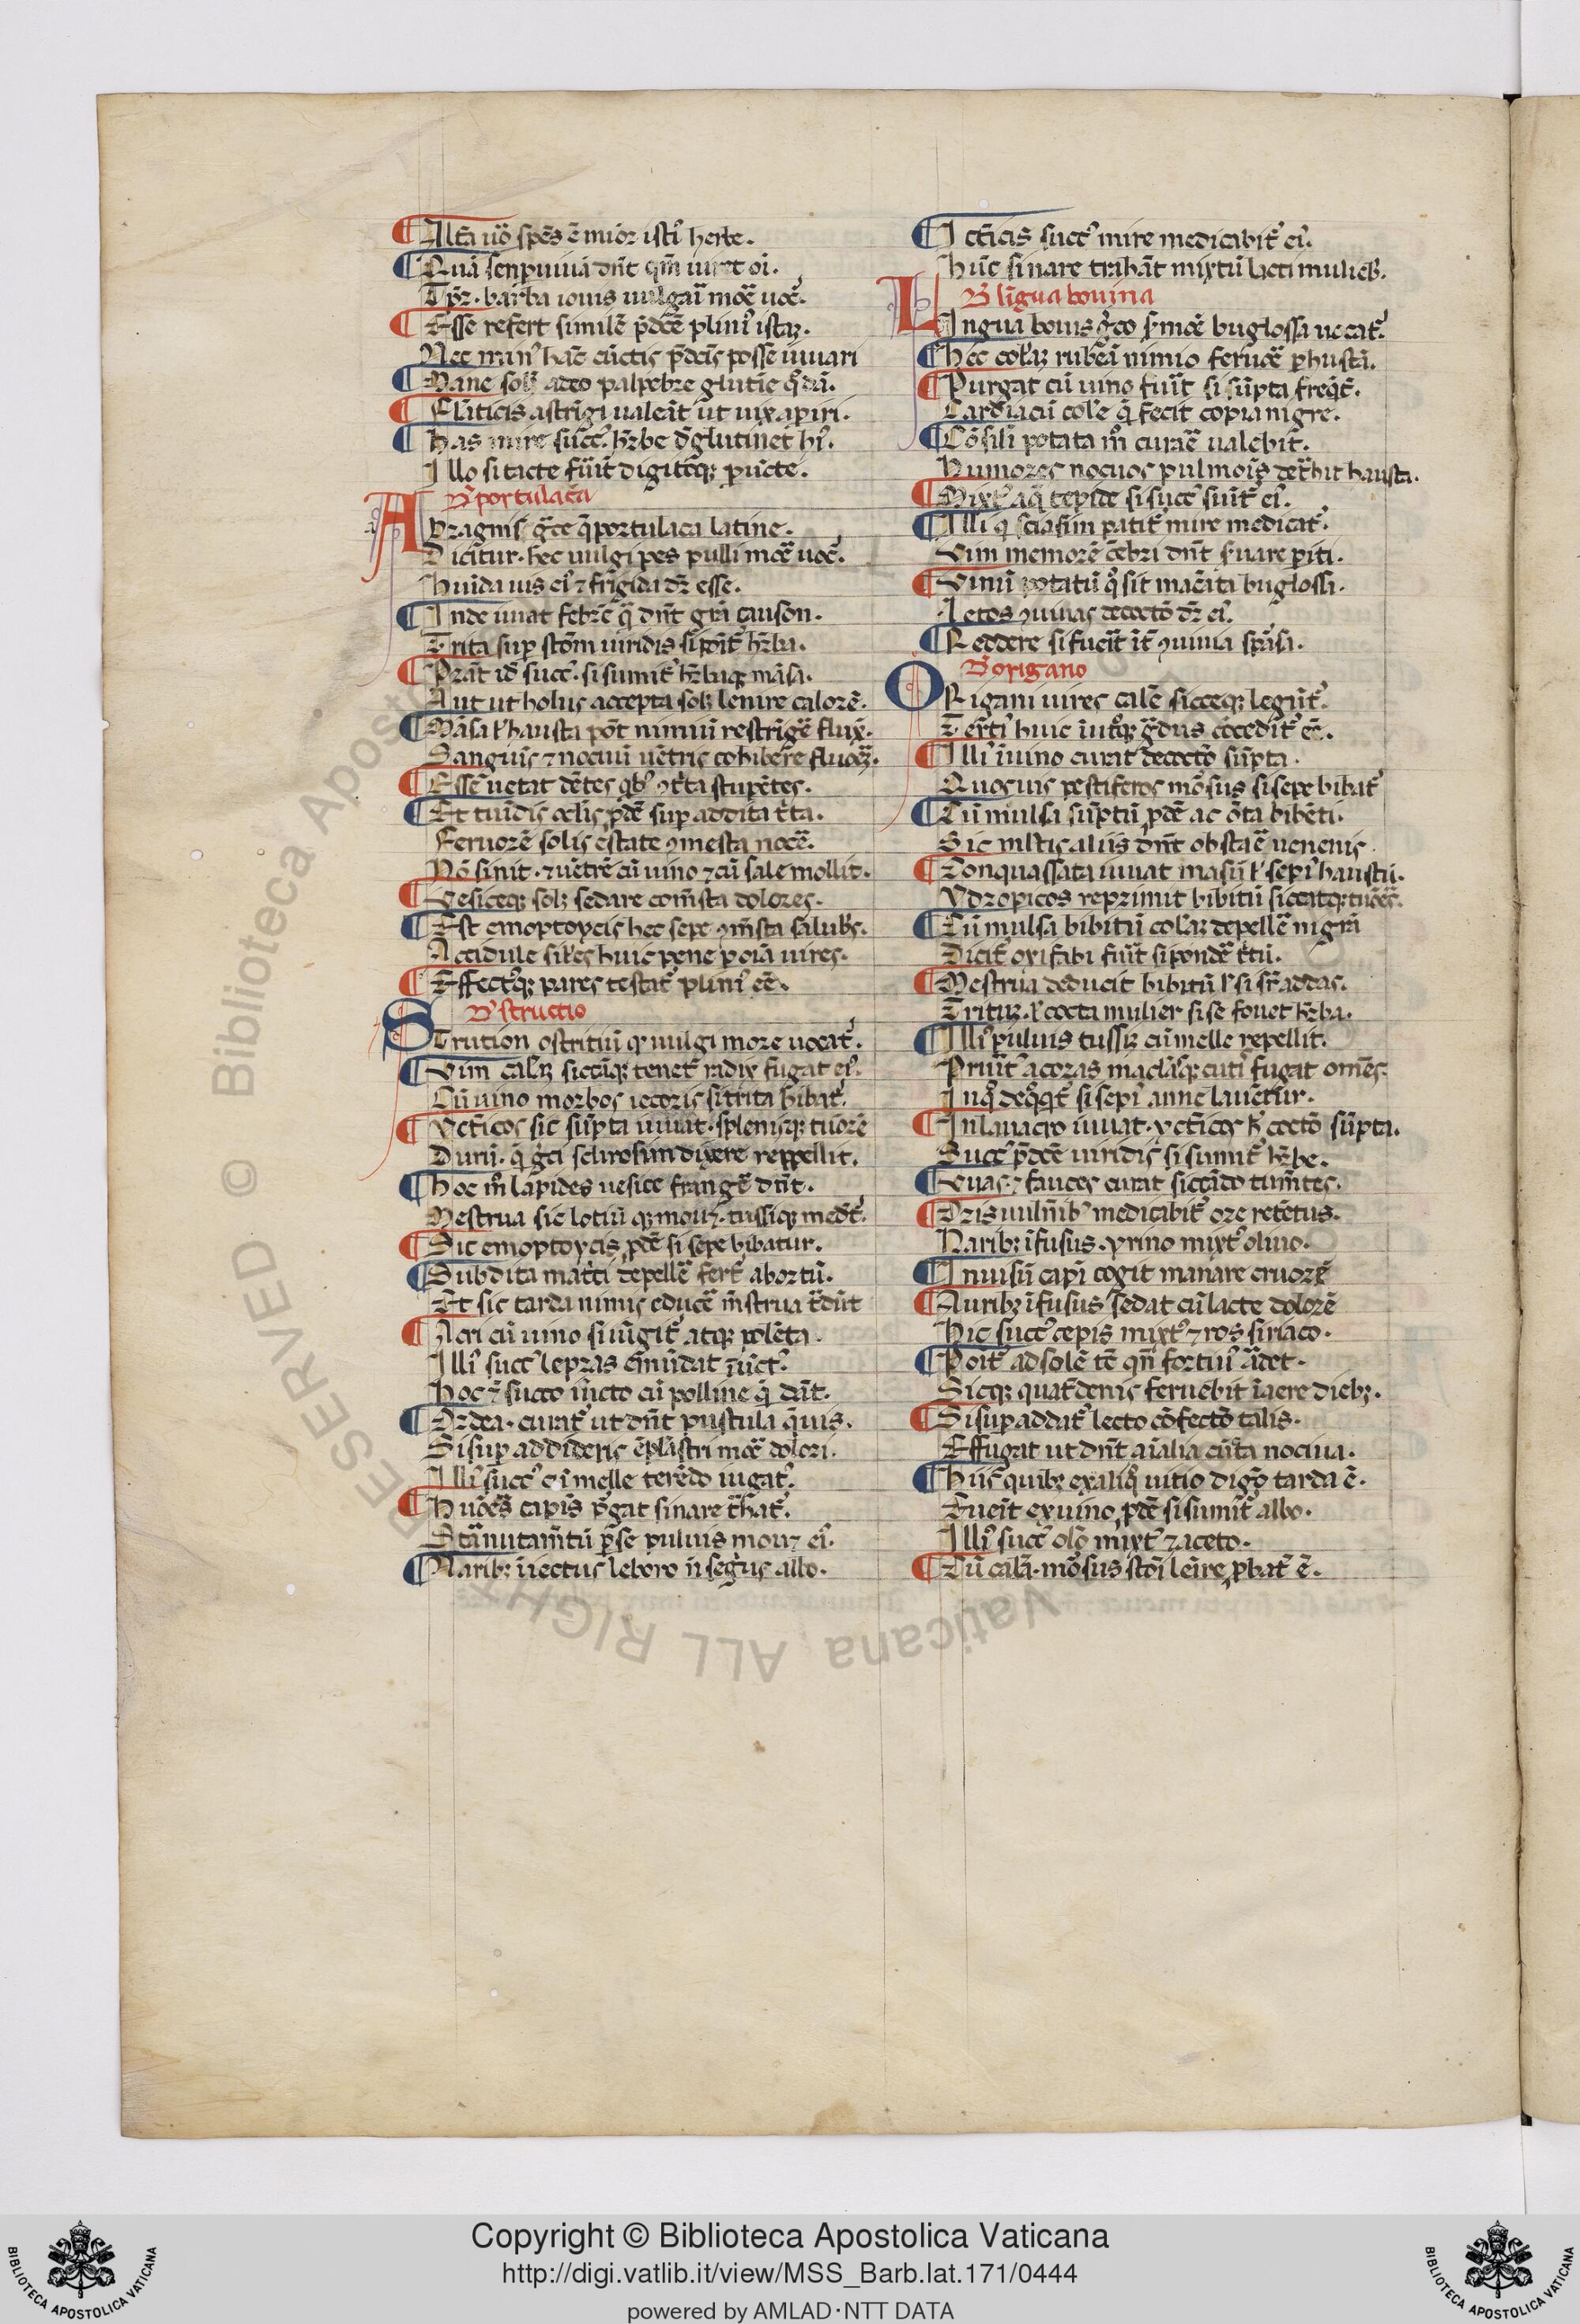 Alt̃a uo᷃ spẽs ẽ minor isti᷒ herbe.
Quã senꝑuiuã dnt̃ qm̃ iuret oĩ.
Tpr̃. barba iouis uulgari mo᷃e uoc̃.
Esse refert simile᷃ p̃dc̃e plini᷒ istaꝫ.
Nec min᷒ hãc cũctis p̃dcĩs posse iuuari
Mane solꝫ adeo palpebre glutĩe q̃dã.
Flũticis astrĩgi ualeãt ut uix aꝑiri.
Has mire succ᷒ hr̃be d̃glutinet hi᷒.
Illo si tacte fũit digiteqꝫ ꝑũcte.
D᷒ portulaca
Andragnis gr̃ce q̃ portulaca latine.
Dicitur. hec uulgi pes pulli mo᷃e uoc̃.
Humida uis ei᷒ ⁊ frigida dr̃ esse.
Inde iuuat febre᷃ q̃ dnt̃ grã causon.
Trita suꝑ stom̃ uiridis si poĩt᷒ hr̃ba.
Prãt id᷃ succ᷒. si sumit᷒ hr̃baqꝫ mãsa.
Aut ut holus accepta solꝫ lenire calore᷃.
Mãsa ł hausta põt nimiũ restrĩge᷃ fluxũ.
Sanguĩs ⁊ nociuũ uẽtris cohibere fluorẽ.
Esse uetat dẽtes qb᷒ ɔtr̃ta stupẽtes.
Et tumidis ocłis ꝓde᷃ suꝑ addita tr̃ta.
Feruore᷃ solis estate ɔmesta noce᷃.
Nõ sinit. ⁊ uẽtre᷃ cũ uino ⁊ cũ sale mollit.
Vesiceqꝫ solꝫ sedare com̃sta dolores.
Est emoptoycis hec sepe ɔm̃sta salubr̃.
Accidule siłes huic pene ꝑ oĩa uires.
Effect᷒qꝫ pares testat᷒ plini᷒ ee᷃.
D᷒ structio
Strution ostrutiũ qꝫ uulgi more uocat᷒.
Vim calꝫ siccãqꝫ tenet᷒ radix fugat ei᷒.
Cũ uino morbos iecoris si trita bibat᷒.
Yctẽicos sic sũpta iuuat. splenisqꝫ tumore᷃
Durũ. q̃ gr̃ci sclirosim dixere reppellit.
Hoc m̊ lapides uesice frange᷃ dnt̃.
Mestrua sic lotiũ qꝫ mouꝫ. tussiqꝫ medet᷒.
Sic emoptoycis ꝓde᷃ si sepe bibatur.
Subdita mat̃ci depelle᷃ fert᷒ abortũ.
Et sic tarda nimis educe᷃ m̃strua tr̃dũt
Acri cũ uino si iũgit᷒ atqꝫ polẽta.
Illi᷒ succ᷒ lepras em̃ũdat inũct᷒.
Hoc ⁊ succo iũcto cũ polline q̃ dãt.
Ordea. curat᷒ ut dnt̃ pustula q̃uis.
Si suꝑ addideris ẽplãstri mo᷃e dolori.
Illi᷒ succ᷒ cũ melle terẽdo iugat᷒.
Humores capĩs ꝑgat si nare tr̃hat᷒.
Stãnutam̃tũ ꝑ se puluis mouꝫ ei᷒.
Naribꝫ iniectus leboro ñ segĩus albo.
Icterĩcis succ᷒ mire medicabit᷒ ei᷒.
Hũc si nare trahãt mixtũ lacti muliebr̃.
D᷒ lĩgua bouina
Lingua bouis gr̃co sermoe᷃ buglossa uocat᷒.
Hec colr̃aꝫ rubẽã nimio feruore᷃ ꝑhustã.
Purgat cũ uino fũit si sũpta freq̃t᷒.
Cardiacũ col̃e q̃ fecit copia nigre.
Cõsili potata m̊ curare᷃ ualebit.
Humores nocuos pulmoĩs detr̃hit hausta.
Mixt᷒ aq̃ tepide si succ᷒ sũit᷒ ei᷒.
Illi q̃ sciasim patit᷒ mire medicat᷒.
Vim memore᷃ cerebri dnt̃ ẜuare ꝑiti.
Vinũ potatũ q̊ sit macẽata buglossa.
Letos ɔuiuas decocto᷃ dr̃ ei᷒.
Reddere si fuerit ĩt᷒ ɔuiuia sꝑãsa.
D᷒ origano
Origani uires cale᷃ sicceqꝫ legũt᷒.
Terti᷒ huic in utroqꝫ gradus ɔcedit᷒ ee᷃.
Illi᷒ ĩ uino curat decocto᷃ sũpta.
Quosuis pestiferos morsus si sepe bibat᷒
Cũ mulsa sũptũ ꝓde᷃ ac õta bibẽti.
Sic multis aliis dnt̃ obstare᷃ uenenis.
Conquassata iuuat masũ ł sepi᷒ haustũ.
Ydropicos reprimit bibitũ siccatqꝫ tumores.
Cũ mulsa bibitũ colr̃aꝫ depelle᷃ nigrã
Dicit᷒ oxifabi fũit si pondere᷃ tr̃tũ.
Mestrua deducit bibitũ ł si sr̃ addas.
Tritũ. ł cocta mulier si se fouet hr̃ba.
Illi᷒ puluis tussiꝫ cũ melle repellit.
Prurit᷒ acoras maclãsqꝫ cuti᷒ fugat omẽs.
In q̊ deq̊qt᷒ si sepi᷒ amne lauẽtur.
In lauacro iuuat. yctĩcos ł cocto᷃ sũpta.
Succ᷒ p̃dc̃e uiridis si sumit᷒ hr̃be.
Vuas ⁊ fauces curat siccãdo tum̃tes.
Oris uuln̄ib᷒ medicabit᷒ ore retẽtus.
Naribꝫ ĩfusus. yrino mixt᷒ oliuo.
In uisũ capĩ cogit manare cruore᷃
Auribꝫ ĩfusus sedat cũ lacte dolore᷃
Hic succ᷒ cepis mixt᷒ ⁊ ros siriaco.
Poĩt᷒ ad sole᷃ te᷃ qñ fortiu᷒ ardet.
Sicqꝫ quat̃denis feruebit ĩ aere diebꝫ.
Si suꝑ addat᷒ lecto cõfecto᷃ talis.
Effugat ut dnt̃ aĩalia cũcta nociua.
Hiis quibꝫ ex aliq̊ uitio digõ tarda e᷃.
Fuerit ex uino ꝓde᷃ si sumit᷒ albo.
Illi᷒ succ᷒ oleo mixt᷒ ⁊ aceto.
Cũ calã. morsus stom̃i lenire ꝓbat᷒ e᷃.
Copyright © Biblioteca Apostolica Vaticana
http://digi.vatlib.it/view/MSS_Barb.lat.171/0444
powered by AMLAD·NTT DATA